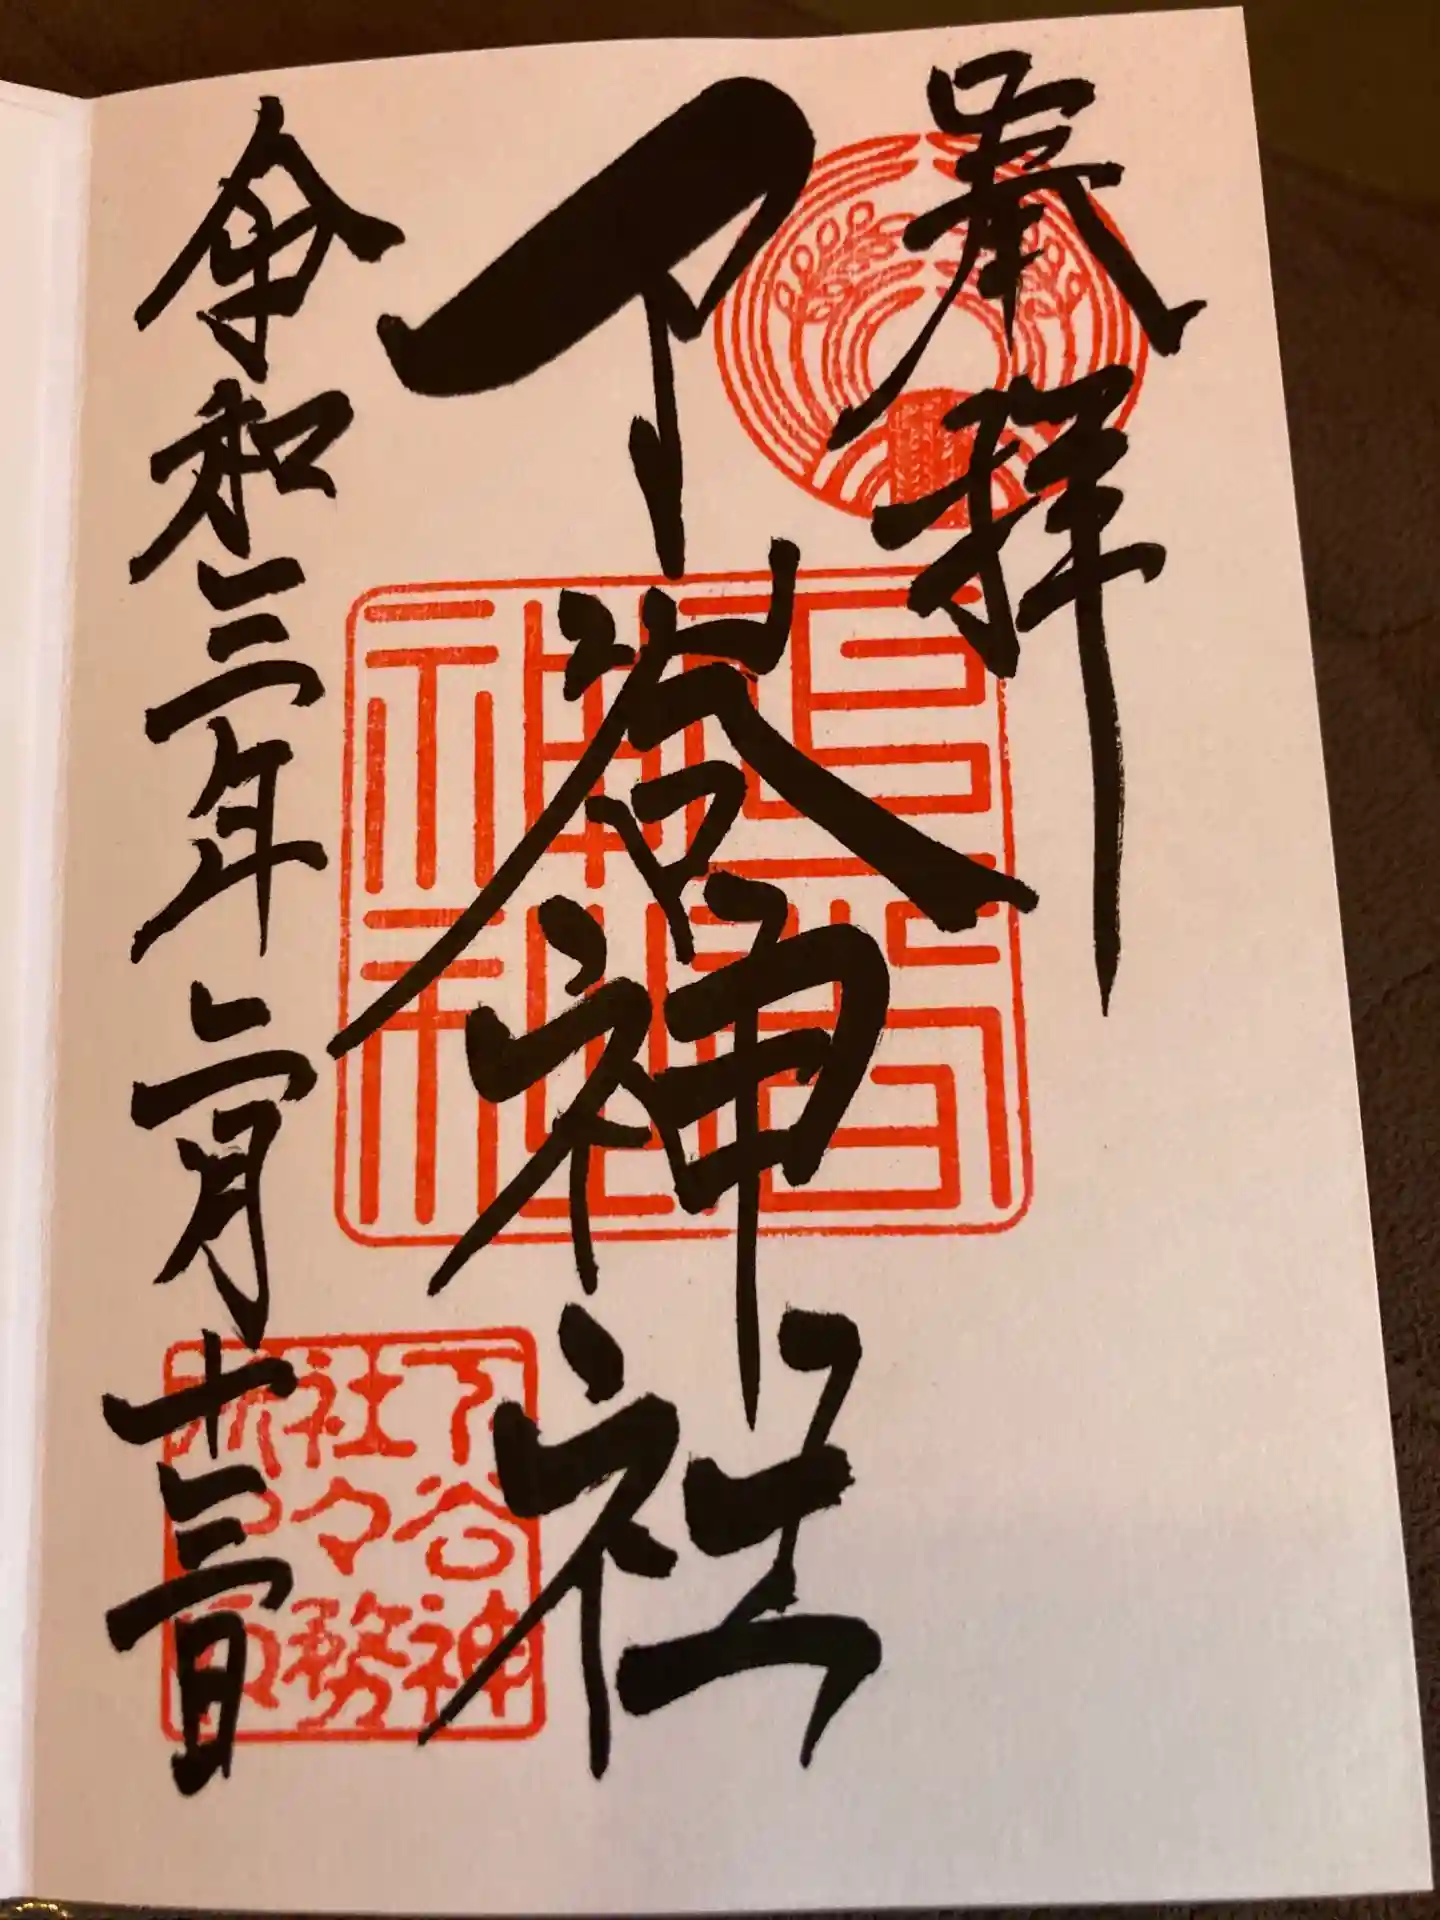 奉拝
下谷神社
令和三年二月十三日
下谷神
社々務
所